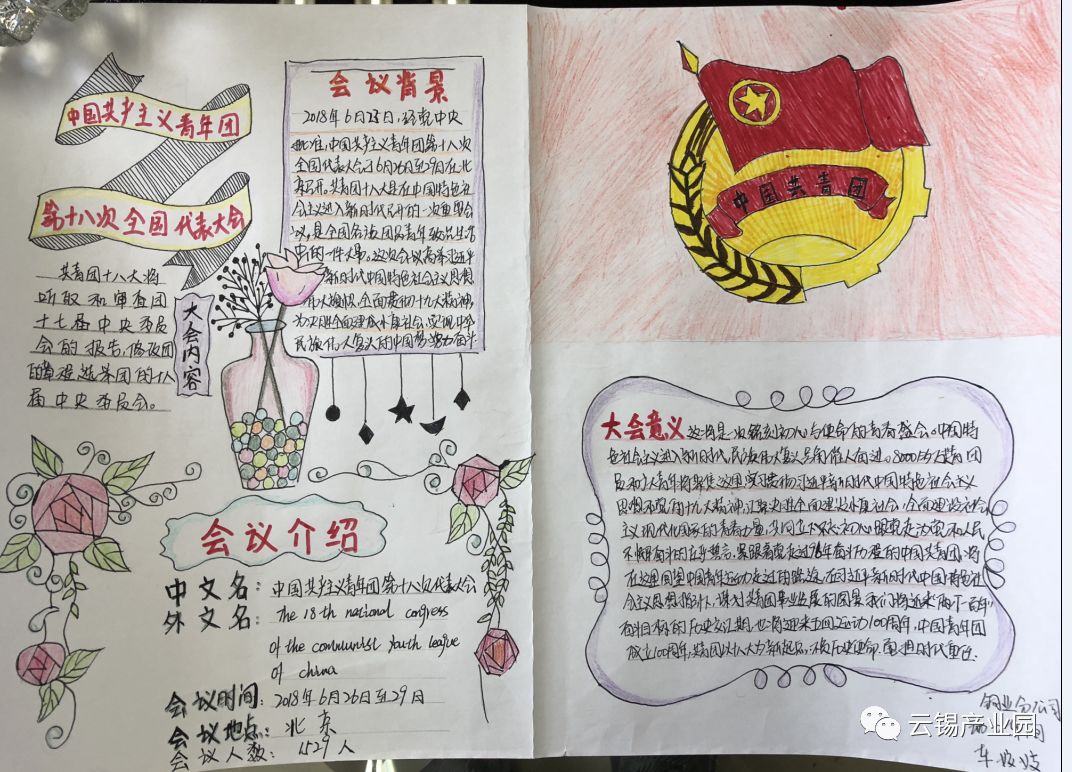 中国共产主义青年团
第十八次全国代表大会
共青团十八大将
听取和审查团
十七届中央委员
会的报告,修改团
章程,选举团的十八
届中央委员会。
大会内容
会议背景
2018年6月23日,经党中央
批准,中国共产主义青年团第十八次
全国代表大会于6月26日至29日在北
京召开,共青团十八大是在中国特色社
会主义进入新时代召开的一次重要会
议,是全国各族团员青年政治生活
中的一件大事。这次会议高举习近平
新时代中国特色社会主义思想
伟大旗帜,全面贯彻十九大精神,
为决胜全面建成小康社会,实现中华
民族伟大复兴的中国梦努力奋斗
会议介绍
中文名:中国共产主义青年团第十八次代表大会
外文名:The 18th national congress
of the communist youth league
of china
会议时间:2018年6月26日至29日
会议地点:北京
会议人数:1529人
中国共青团
大会意义 这将是一次铭刻初心与使命的青春盛会。中国特
色社会主义进入新时代,民族伟大复兴号角催人奋进。8000多万共青团
员和广大青年将聚集这里,学习贯彻习近平新时代中国特色社会主义
思想和党的十九大精神,汇聚决胜全面建成小康社会,全面建设社会
主义现代化国家的青春力量,共同立下不忘初心跟党走,为党和人民
不懈奋斗的庄严誓言。紧跟着党走过96年奋斗历程的中国共青团,将
在这里回望中国青年运动走过的路途,在习近平新时代中国特色社
会主义思想指引下,谋划共青团事业发展的图景。我们将迎来"两个一百年"
奋斗目标的历史交汇期,也将迎来五四运动100周年,中国共青团
成立100周年,共青团以十八大为新起点,不负历史使命,勇担时代重任.
铜业分公司
车
云锡产业园